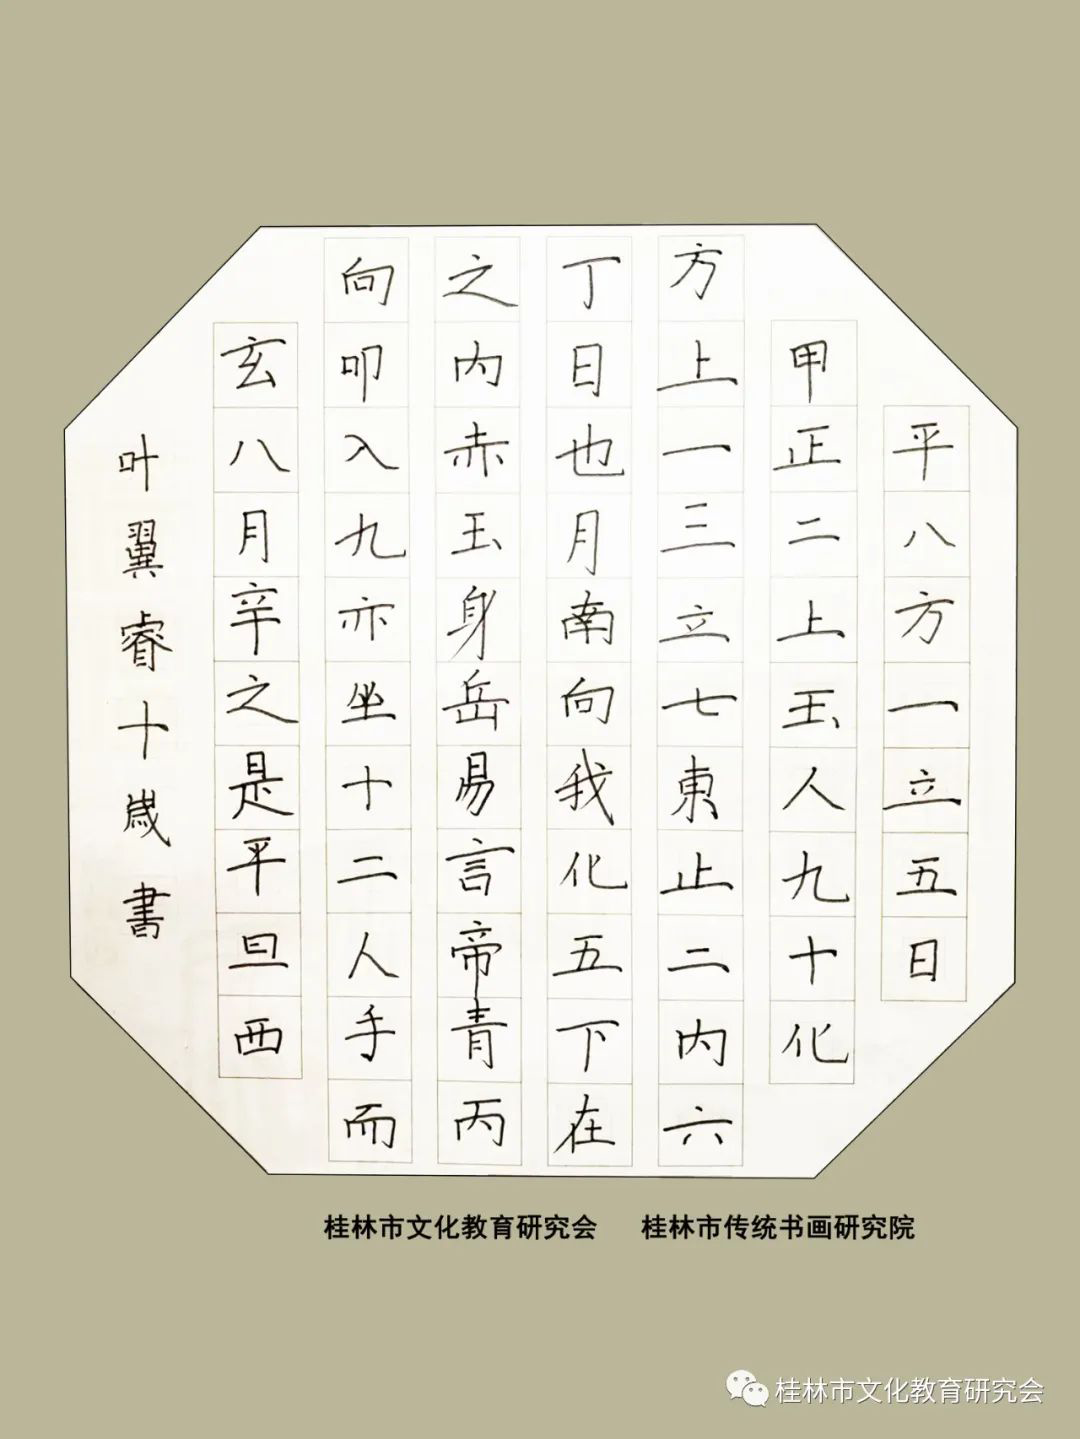 平八方一立五日
甲正二上玉人九十化
方上一三立七東止二内六
丁日也月南向我化五下在
之内赤玉身岳易言帝青丙
向叩入九亦坐十二人手而
玄八月辛之是平旦西
叶翼睿十歲書
桂林市文化教育研究会 桂林市传统书画研究院
桂林市文化教育研究会